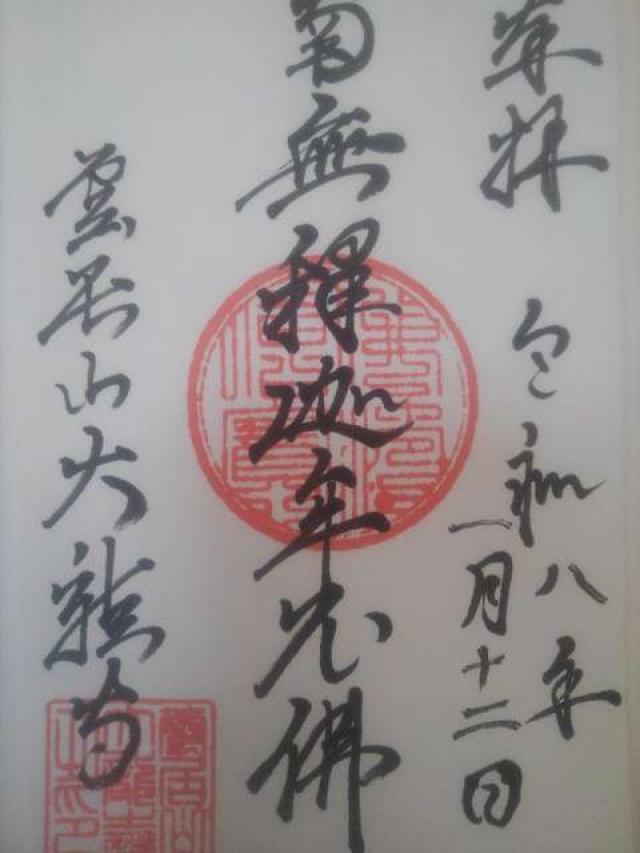 奉拝
令和八年
一月十二日
南無釋迦牟尼佛
雲山大龍寺